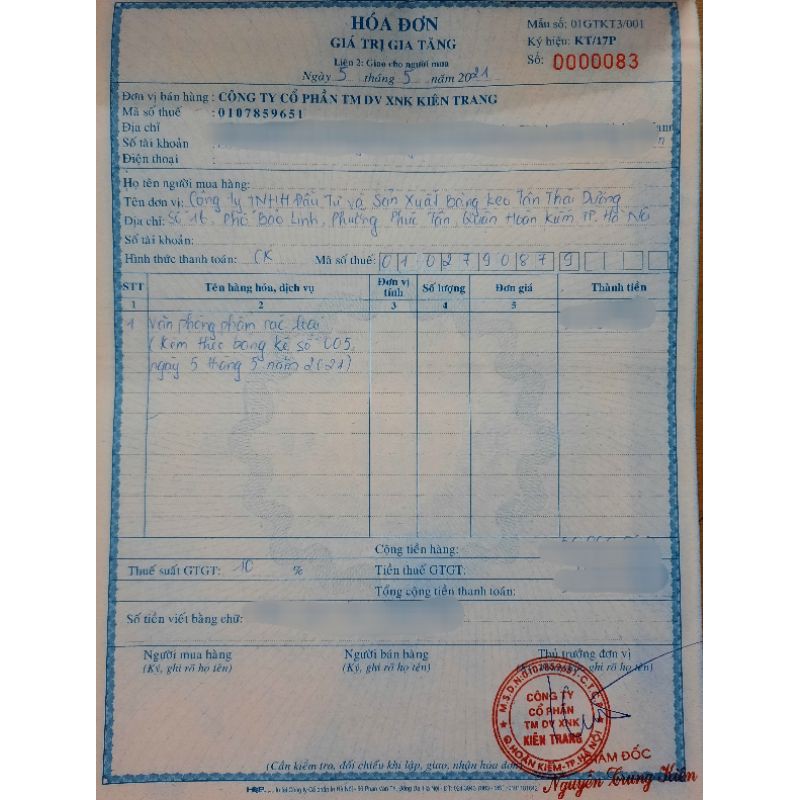 HÓA ĐƠN
GIÁ TRỊ GIA TĂNG
Liên 2: Giao cho người mua
Ngày 5 tháng 5 năm 2021
Mẫu số: 01GTKT3/001
Ký hiệu: KT/17P
Số: 0000083
Đơn vị bán hàng: CÔNG TY CỔ PHẦN TM DV XNK KIÊN TRANG
Mã số thuế : 0107859651
Địa chỉ :
Số tài khoản :
Điện thoại :
Họ tên người mua hàng:
Tên đơn vị: Công ty TNHH Đầu Tư và Sản Xuất băng keo Tân Thái Dương
Địa chỉ: Số 16, Phố Bảo Linh, Phường Phúc Tân, Quận Hoàn Kiếm TP. Hà Nội
Số tài khoản:
Hình thức thanh toán: CK Mã số thuế: 0102790879
STT Tên hàng hóa, dịch vụ Đơn vị tính Số lượng Đơn giá Thành tiền
1 2 3 4 5
1 Văn phòng phẩm các loại
(Kèm theo bảng kê số 005,
ngày 5 tháng 5 năm 2021)
Cộng tiền hàng:
Thuế suất GTGT: 10 % Tiền thuế GTGT:
Tổng cộng tiền thanh toán:
Số tiền viết bằng chữ:
Người mua hàng Người bán hàng Thủ trưởng đơn vị
(Ký, ghi rõ họ tên) (Ký, ghi rõ họ tên) ghi rõ họ tên)
M.S.D.N:0107859651-C.T.C.P
CÔNG TY
CỔ PHẦN
TM DV XNK
KIÊN TRANG
Q HOÀN KIẾM-TP.HÀ NỘI
GIÁM ĐỐC
Nguyễn Trung Kiên
(Cần kiểm tra, đối chiếu khi lập, giao, nhận hóa đơn)